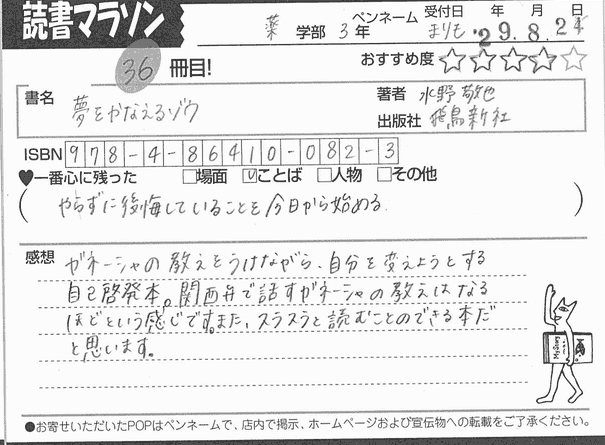 読書マラソン
薬 学部 3年 ペンネーム まりも 受付日 '29年8月24日
36 冊目! おすすめ度 ☆☆☆☆☆
書名 夢をかなえるゾウ
著者 水野敬也
出版社 飛鳥新社
ISBN 978-4-86410-082-3
♥一番心に残った □場面 ☑ことば □人物 □その他
(やらずに後悔していることを今日から始める.)
感想 ガネーシャの教えをうけながら、自分を変えようとする
自己啓発本。関西弁で話すガネーシャの教えはなる
ほどという感じです。また、スラスラと読むことのできる本だ
と思います。
●お寄せいただいたPOPはペンネームで、店内で掲示、ホームページおよび宣伝物への転載をご了承ください。